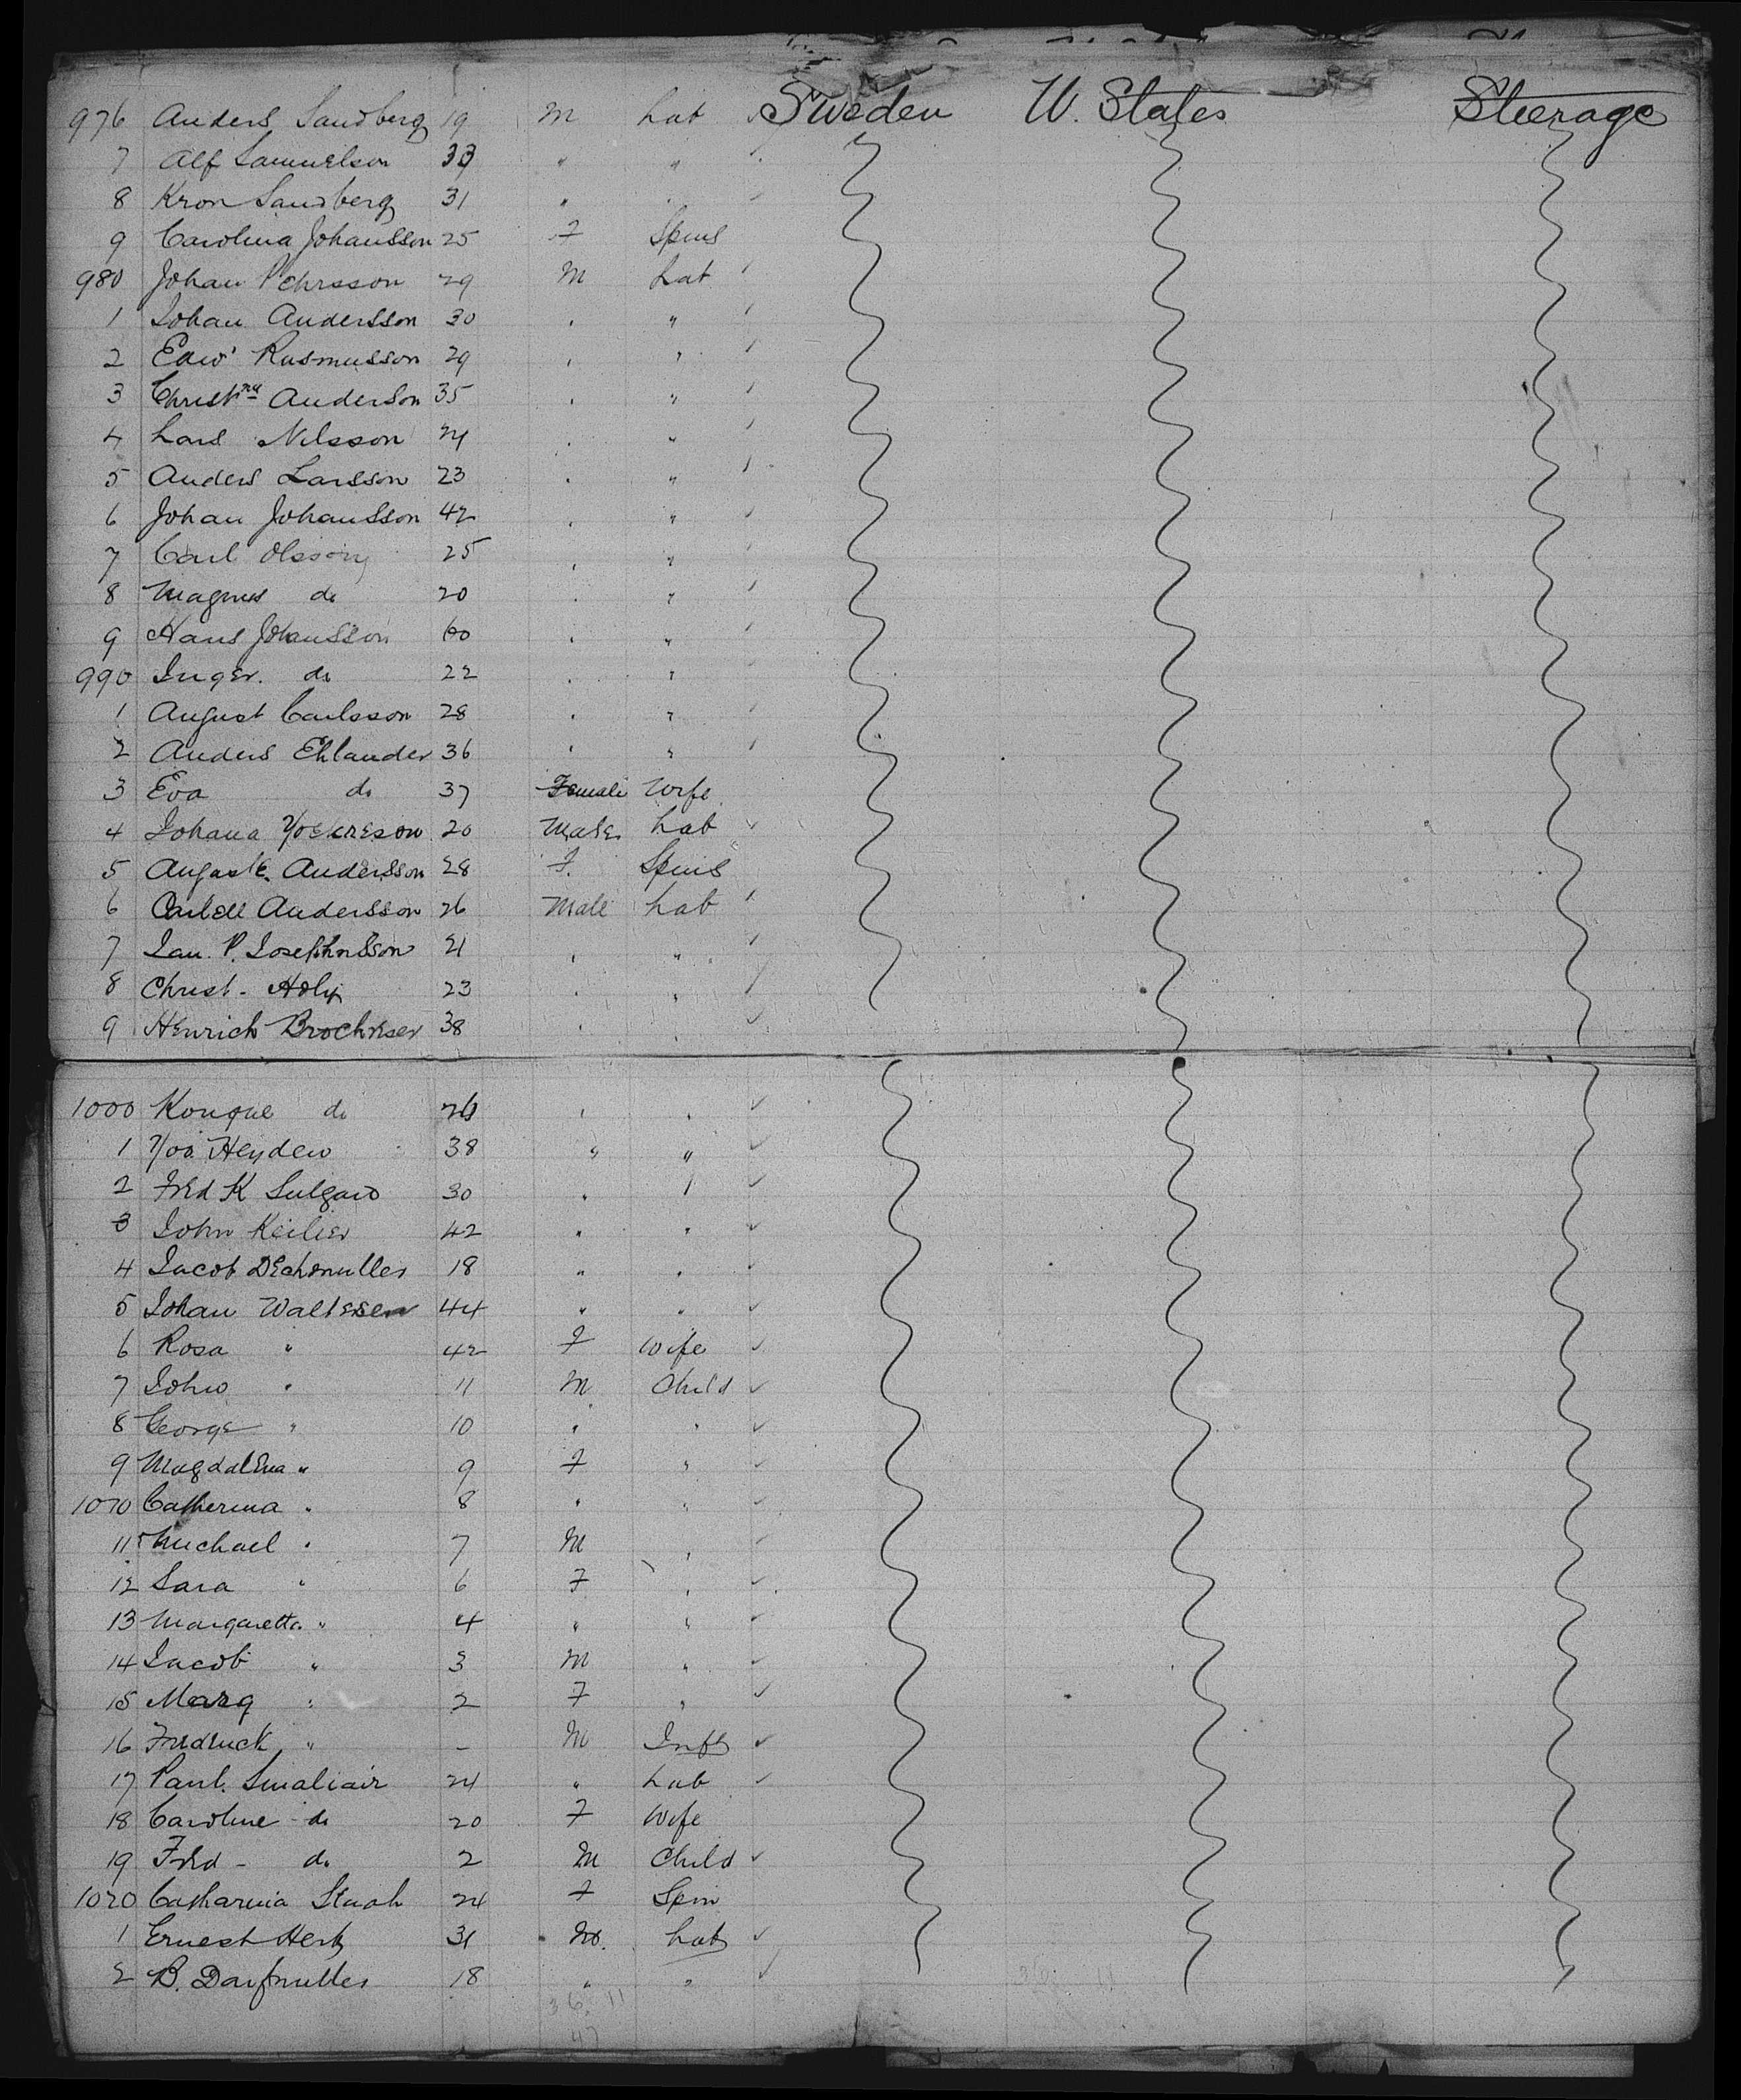 976 Anders Sandberg 19 M Lab Sweden U. States Steerage
7 Alf Samuelson 33 " "
8 Kron Sandberg 31 " "
9 Carolina Johansson 25 F Spins
980 Johan Pehrsson 29 M Lab
1 Johan Andersson 30 " "
2 Edwd Rasmusson 29 " "
3 Christna Anderson 35 " "
4 Lars Nilsson 24 " "
5 Anders Larsson 23 " "
6 Johan Johansson 42 " "
7 Carl Olsson 25 " "
8 Magnus do 20 " "
9 Hans Johansson 60 " "
990 Inger. do 22 " "
1 August Carlsson 28 " "
2 Anders Ehlander 36 " "
3 Eva do 37 Female Wife
4 Johana 20 Male Lab
5 Auguste Andersson 28 F. Spins
6 Andersson 26 Male Lab
7 Jan. P. Josephnsson 21 " "
8 Christ. 23 " "
9 Henrich 38 " "
1000 do 26 " "
1 Heyden 38 " "
2 Fred K 30 "
3 John Keilier 42 " "
4 Jacob 18 " "
5 Johan 44 " "
6 Rosa " 42 F Wife
7 John " 11 M Child
8 George " 10 " "
9 Magdalena " 9 F "
1010 Catherina " 8 " "
11 Michael " 7 M "
12 Sara " 6 F "
13 Margaretta " 4 " "
14 Jacob " 3 M "
15 Marg " 2 F "
16 Fredrick " – M Inft
17 Paul. 24 " Lab
18 Caroline do 20 F Wife
19 Fred - do 2 M Child
1020 Catharina 24 F Spin
1 Ernest 31 M. Lab
2 B. 18 " "
36. 11
47